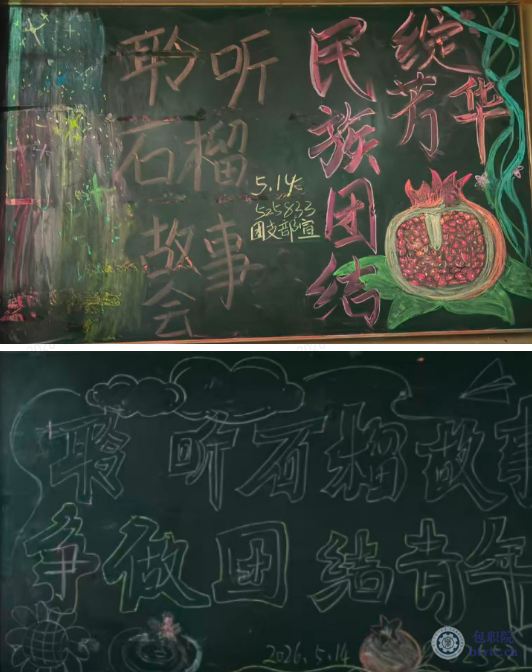 聆听
石榴
故事
会
5.14
525833
民族团结
绽芳华
聆听石榴故事
争做团结青年
2026.5.14
包职院